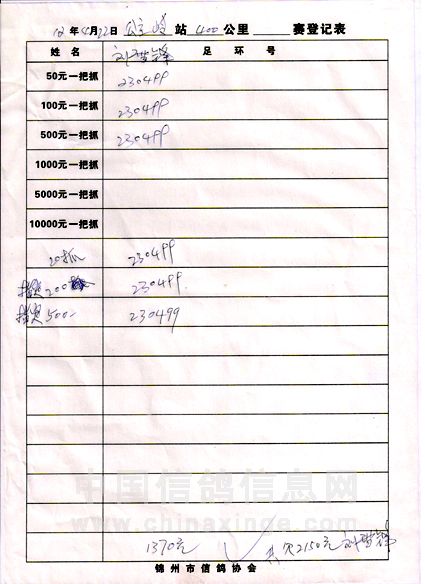 12年4月22日 公主岭 站 400 公里 赛登记表
姓名 刘 锋 足环号
50元一把抓 230499
100元一把抓 230499
500元一把抓 230499
1000元一把抓
5000元一把抓
10000元一把抓
20抓 230499
指定200 230499
指定500- 230499
中国信鸽信息网
www.chinaxinge.com
1370元 共欠2150元 刘 锋
锦州市信鸽协会